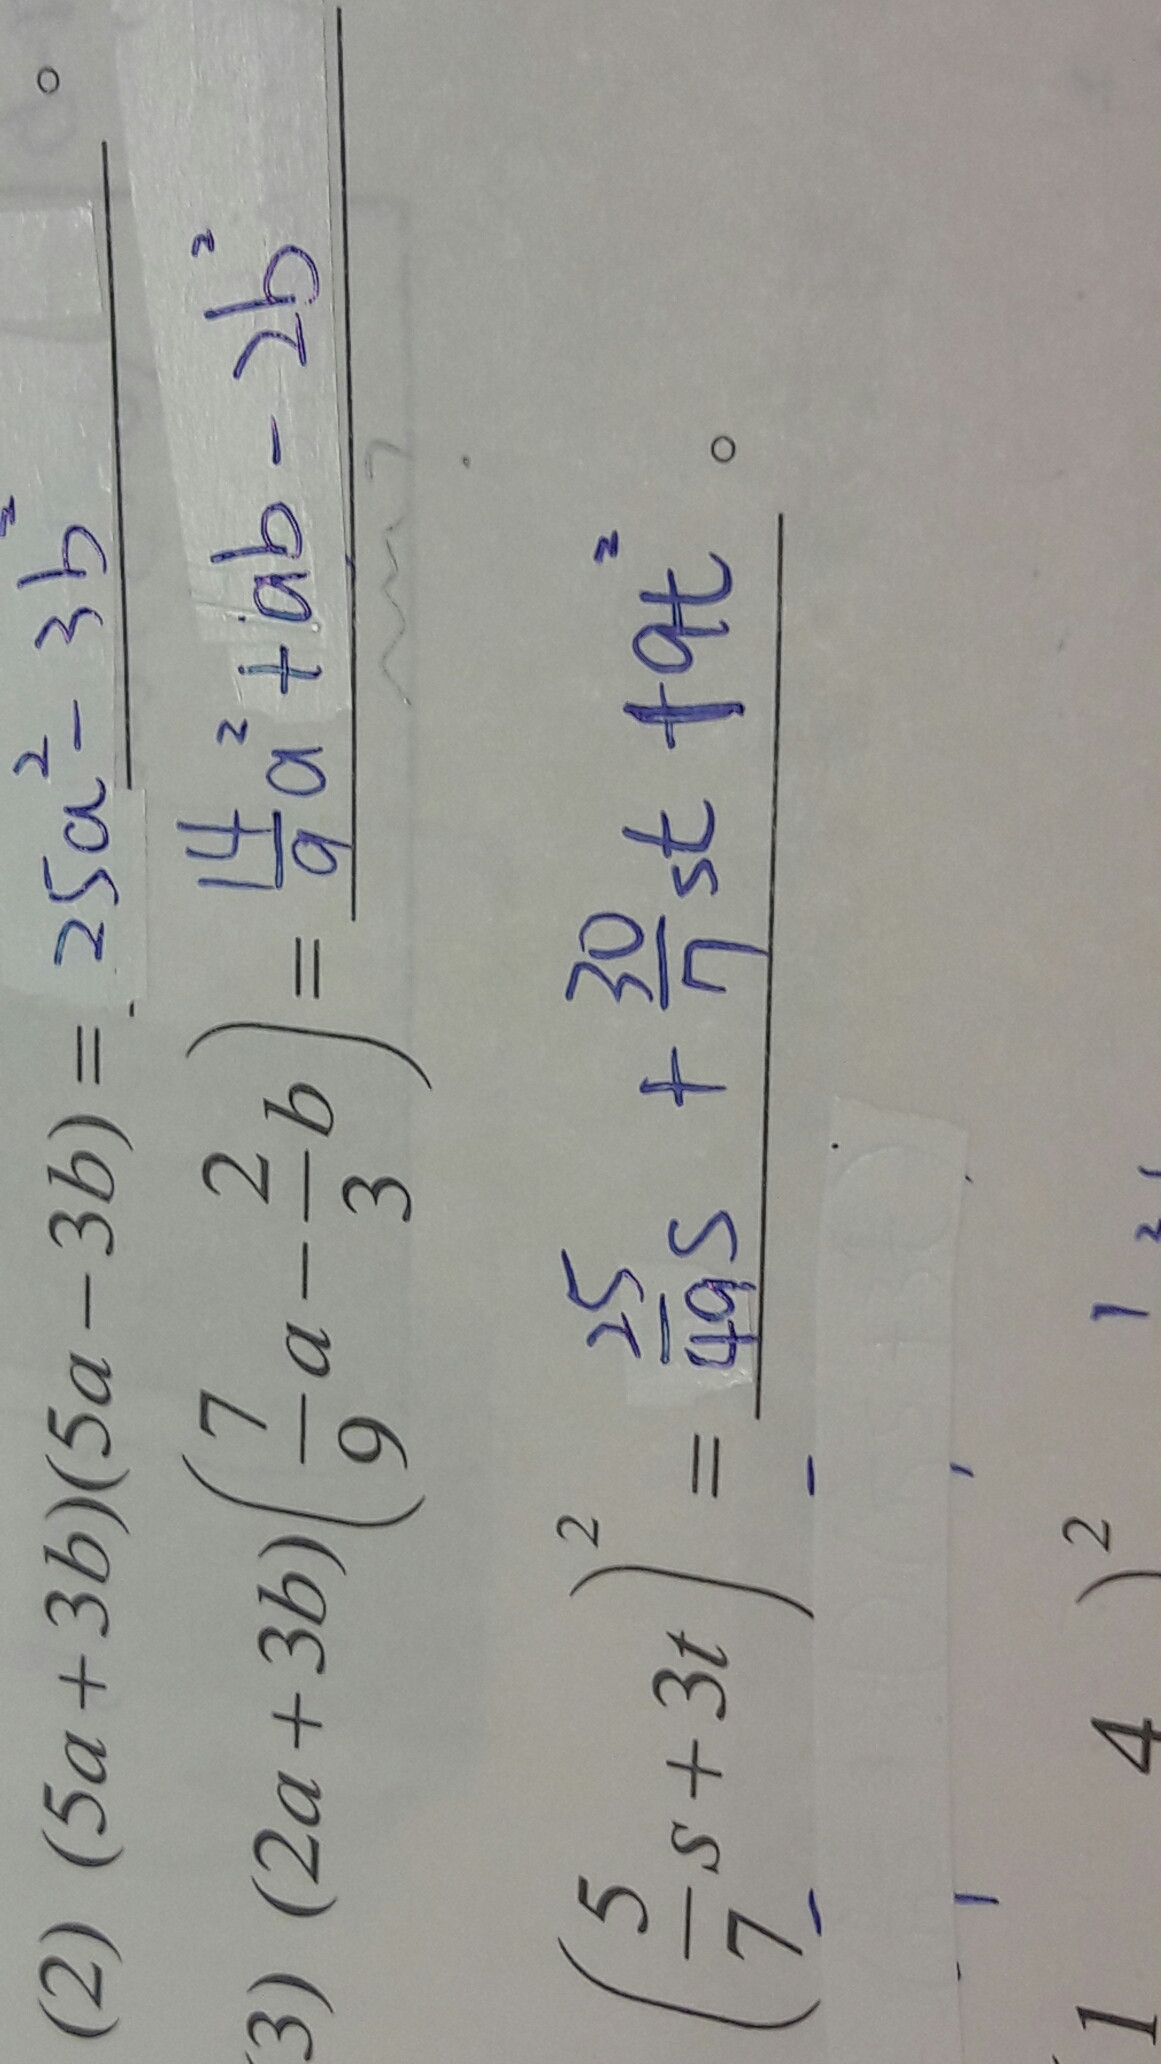 (2) (5a+3b)(5a-3b) = 25a² - 3b² 。
3) (2a+3b)(7/9 a - 2/3 b) = 14/9 a² + ab - 2b²
(5/7 s + 3t)² = 25/49 s + 30/7 st + 9t² 。
1 4 )²